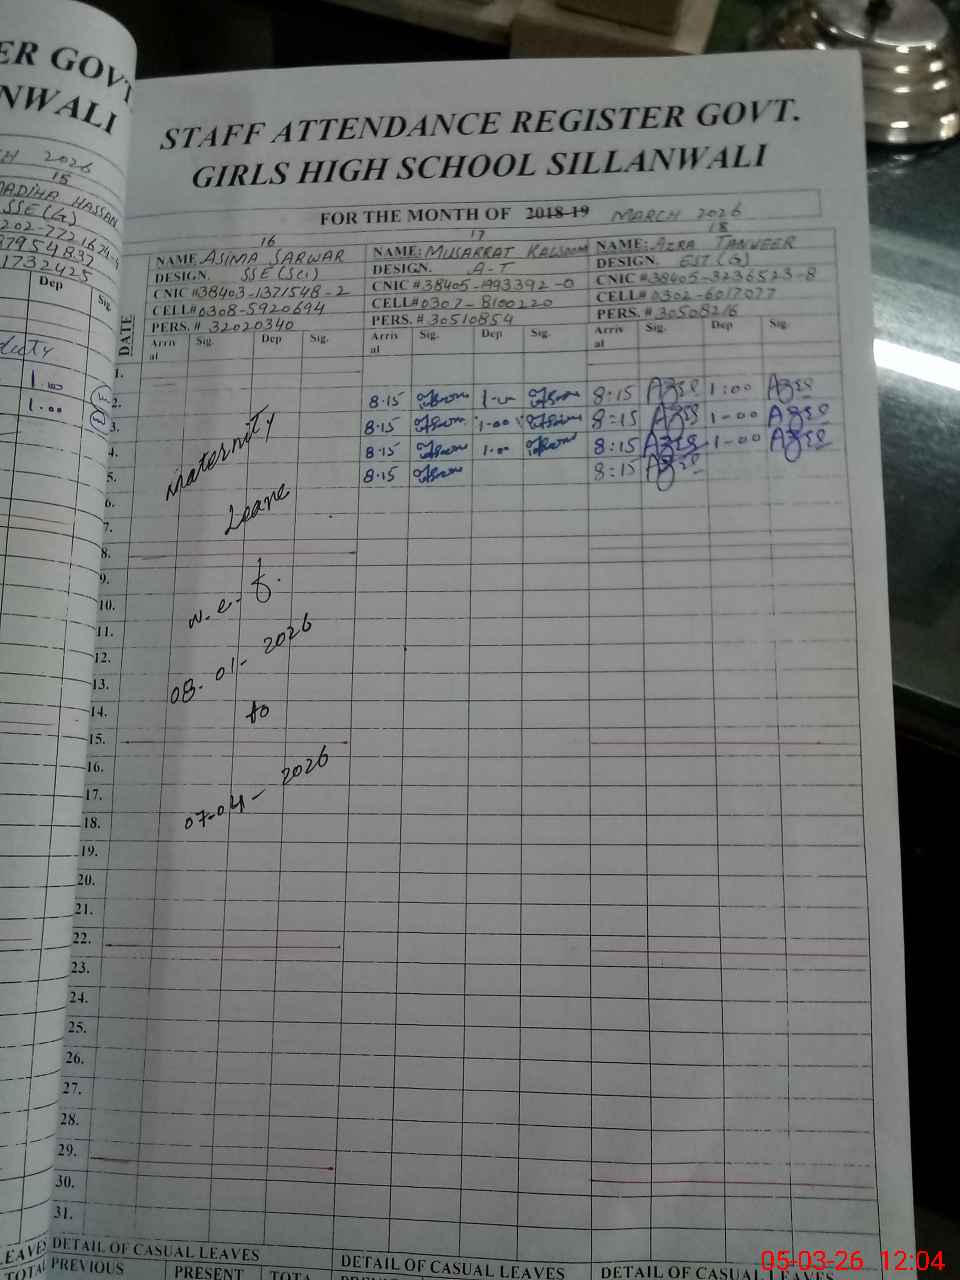 ER GOVT
NWALI
STAFF ATTENDANCE REGISTER GOVT.
GIRLS HIGH SCHOOL SILLANWALI
FOR THE MONTH OF 2018-19 MARCH 2026
2026
15
MADIHA HASSAN
SSE(G)
202-7721624-4
87954837
1732425
Dep Sig.
duty
1.00
1.00
16 17 18
NAME ASIMA SARWAR NAME: MUSARRAT KALSOOM NAME: AZRA TANVEER
DESIGN. SSE (Sci) DESIGN. A-T DESIGN. EST (G)
CNIC #38403-1371548-2 CNIC #38405-1993392-0 CNIC #38405-3236523-8
CELL# 0308-5920694 CELL# 0307-8100220 CELL# 0302-6017077
PERS. # 32020340 PERS. # 30510854 PERS. # 30508216
DATE
Arrival Sig. Dep Sig. Arrival Sig. Dep Sig. Arrival Sig. Dep Sig.
1.
2. 8.15 1.00 8:15 1:00
3. 8.15 1.00 8:15 1-00
4. 8.15 1.00 8:15 1-00
5. 8.15 8:15
Maternity
6.
Leave
7.
8.
9.
10.
w.e.f.
11.
12.
08-01-2026
13.
14.
to
15.
16.
17.
07-04-2026
18.
19.
20.
21.
22.
23.
24.
25.
26.
27.
28.
29.
30.
31.
LEAVES DETAIL OF CASUAL LEAVES DETAIL OF CASUAL LEAVES DETAIL OF CASUAL LEAVES
TOTAL PREVIOUS PRESENT
05-03-26 12:04